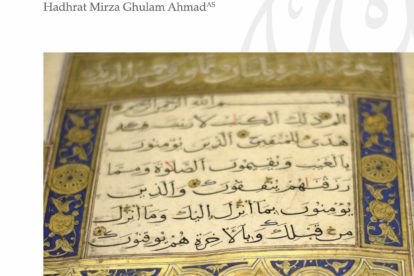 Hadhrat Mirza Ghulam Ahmadᴬˢ
بسم الله الرحمن الرحيم
الم ذلك الكتاب لا ريب فيه
هدى للمتقين الذين يؤمنون
بالغيب ويقيمون الصلوة ومما
رزقناهم ينفقون والذين
يؤمنون بما أنزل اليك وما أنزل
من قبلك وبالآخرة هم يوقنون